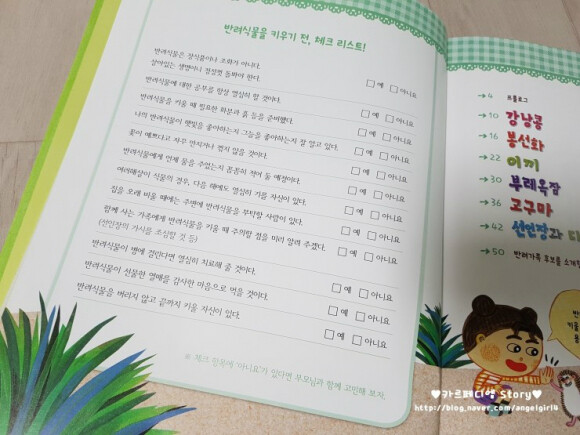 반려식물을 키우기 전, 체크 리스트!
반려식물은 장식품이나 조화가 아니다.
살아있는 생명이니 정성껏 돌봐야 한다.
예 아니요
반려식물에 대한 공부를 항상 열심히 할 것이다.
예 아니요
반려식물을 키울 때 필요한 화분과 흙 등을 준비했다.
예 아니요
나의 반려식물이 햇빛을 좋아하는지 그늘을 좋아하는지 잘 알고 있다.
예 아니요
꽃이 예쁘다고 자주 만지거나 꺾지 않을 것이다.
예 아니요
반려식물에게 언제 물을 주었는지 꼼꼼히 적어 둘 예정이다.
예 아니요
여러해살이 식물의 경우, 다음 해에도 열심히 키울 자신이 있다.
예 아니요
집을 오래 비울 때에는 주변에 반려식물을 부탁할 사람이 있다.
예 아니요
함께 사는 가족에게 반려식물을 키울 때 주의할 점을 미리 알려 주겠다.
(선인장의 가시를 조심할 것 등)
예 아니요
반려식물이 병에 걸린다면 열심히 치료해 줄 것이다.
예 아니요
반려식물이 선물한 열매를 감사한 마음으로 먹을 것이다.
예 아니요
반려식물을 버리지 않고 끝까지 키울 자신이 있다.
예 아니요
※ 체크 항목에 '아니요'가 있다면 부모님과 함께 고민해 보자.
4 프롤로그
10 강낭콩
16 봉선화
22 이끼
30 부레옥잠
36 고구마
42 선인장과
50 반려가족 후보를 소개
♥카르페디앰 Story♥
http://blog.naver.com/angelgirl4